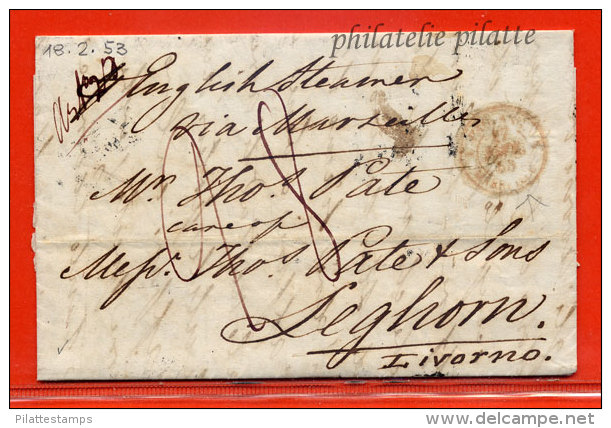 18.2.53
philatelie pilatte
English Steamer
via Marseilles
Mr. Thos. Pate
care of
Messrs. Thos. Pate & Sons
Leghorn.
Livorno.
Pilattestamps
©delcampe.net